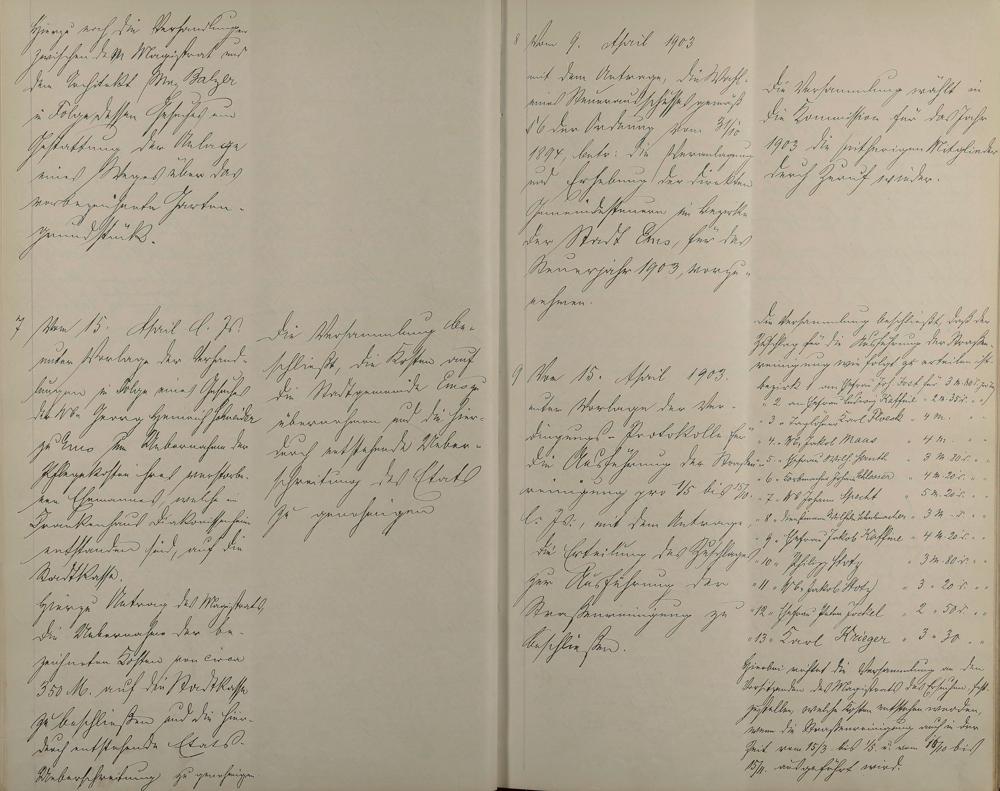 Hierzu noch die Verhandlungen
zwischen dem Magistrat und
dem Architekt Max Balzer
in Folge dessen Gesuches um
Gestattung der Anlage
eines Weges über das
vorbezeichnete Garten-
grundstück.
7 Vom 15. April l. Js.
unter Vorlage der Verhand-
lungen in Folge eines Gesuches
der Wwe Georg Heinrich
zu Ems um Uebernahme der
Pflegekosten ihres verstorbe-
nen Ehemannes, welche im
Krankenhaus Diakonissenheim
entstanden sind, auf die
Stadtkasse.
Hierzu Antrag des Magistrats
die Uebernahme der be-
zeichneten Kosten von circa
350 M. auf die Stadtkasse
zu beschließen und die hier-
durch entstehende Etats-
Ueberschreitung zu genehmigen
Die Versammlung be-
schließt, die Kosten auf
die Stadtgemeinde Ems zu
übernehmen und die hier-
durch entstehende Ueber-
schreitung des Etats
zu genehmigen
8 Vom 9. April 1903
mit dem Antrage, die Wahl
eines Steuerausschusses gemäß
§ 6 der Ordnung vom 31/10
1894, betr: die Veranlagung
und Erhebung der direkten
Gemeindesteuern im Bezirke
der Stadt Ems, für das
Steuerjahr 1903, vorzu-
nehmen.
Die Versammlung wählt in
die Kommission für das Jahr
1903 die seitherigen Mitglieder
durch Zuruf wieder.
9 Vom 15. April 1903.
unter Vorlage der Ver-
dingungs-Protokolle für
die Ausführung der Straßen-
reinigung pro 1/5 bis 15/10
l. Js., mit dem Antrage,
die Erteilung des Zuschlages
zur Ausführung der
Straßenreinigung zu
beschließen.
Die Versammlung beschließt, daß der
Zuschlag für die Ausführung der Straßen-
reinigung wie folgt zu erteilen ist:
bezirk 1 an Ehefrau Joh. für 3 M. 80
" 2 an Ehefrau Ludwig Kaffine " 2 M. 35 " "
" 3 " Taglöhner Karl Floeck " 4 M.
" 4 " Wwe Jakob Maas " 4 M.
" 5 " Ehefrau Adolf " 3 M. 20
" 6 " Korbmacher Johann " 4 M. 20
" 7 " Wwe Johann Specht " 5 M. 20
" 8 " Wilhelm " 3 M.
" 9 " Ehefrau Jakob Kaffine " 4 M. 20
" 10 " Philipp Stotz " 3 M. 80
" 11 " Wwe Jakob Stotz " 3 " 20
" 12 " Ehefrau Peter " 2 " 50
" 13 " Karl Krieger " 3 " 30 " "
Hierbei richtet die Versammlung an den
Vorsitzenden des Magistrats das Ersuchen fest-
zustellen, welche Kosten entstehen würden,
wenn die Straßenreinigung auch in der
Zeit vom 15/3 bis 1/5 u. vom 15/10 bis
15/11 ausgeführt wird.